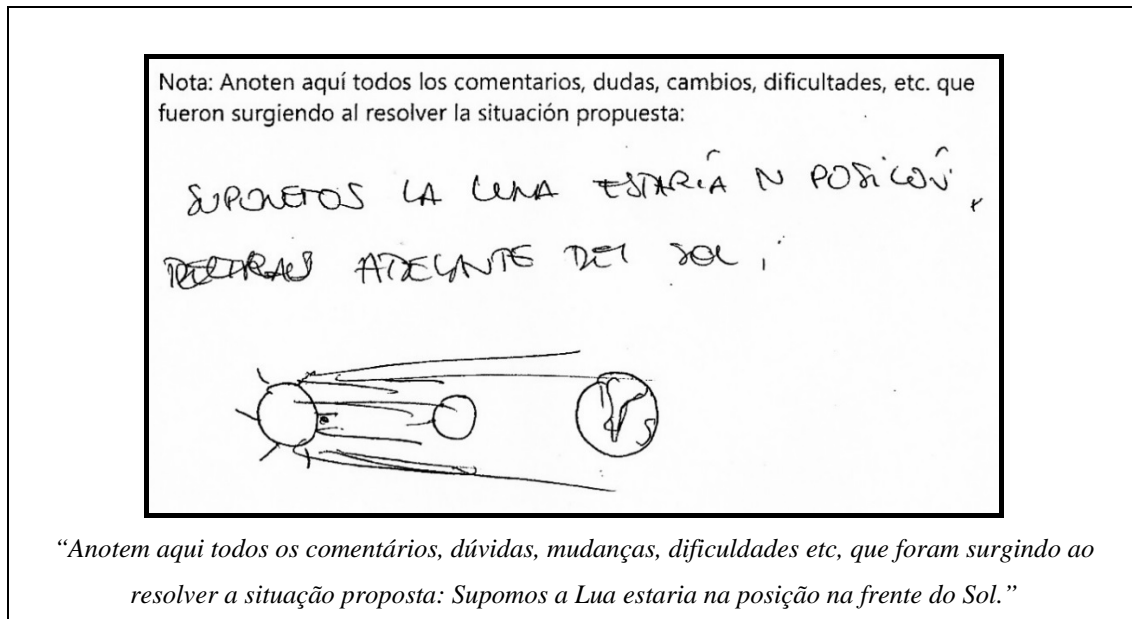 Nota: Anoten aquí todos los comentarios, dudas, cambios, dificultades, etc. que
fueron surgiendo al resolver la situación propuesta:
LA LUNA ESTARÍA POSICIÓN
ADELANTE DEL SOL,
“Anotem aqui todos os comentários, dúvidas, mudanças, dificuldades etc, que foram surgindo ao
resolver a situação proposta: Supomos a Lua estaria na posição na frente do Sol.”